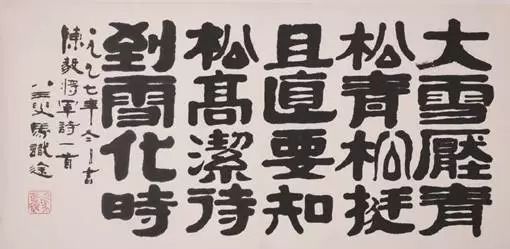 大雪壓青
松青松挺
且直要知
松高潔待
到雪化時
一九九七年冬日書
陳毅將軍詩一首
叟馬識途